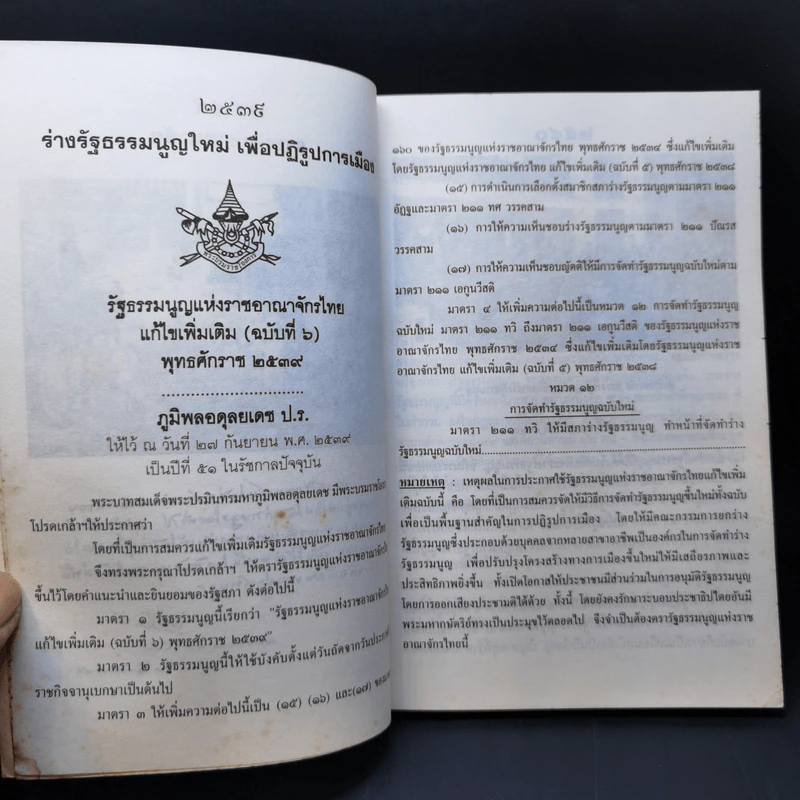 ๒๕๓๙
ร่างรัฐธรรมนูญใหม่ เพื่อปฏิรูปการเมือง
รัฐธรรมนูญแห่งราชอาณาจักรไทย
แก้ไขเพิ่มเติม (ฉบับที่ ๖)
พุทธศักราช ๒๕๓๙
ภูมิพลอดุลยเดช ป.ร.
ให้ไว้ ณ วันที่ ๒๗ กันยายน พ.ศ. ๒๕๓๙
เป็นปีที่ ๕๑ ในรัชกาลปัจจุบัน
พระบาทสมเด็จพระปรมินทรมหาภูมิพลอดุลยเดช มีพระบรมราชโองการ
โปรดเกล้าฯให้ประกาศว่า
โดยที่เป็นการสมควรแก้ไขเพิ่มเติมรัฐธรรมนูญแห่งราชอาณาจักรไทย
จึงทรงพระกรุณาโปรดเกล้าฯ ให้ตรารัฐธรรมนูญแห่งราชอาณาจักรไทย
ขึ้นไว้โดยคำแนะนำและยินยอมของรัฐสภา ดังต่อไปนี้
มาตรา ๑ รัฐธรรมนูญนี้เรียกว่า "รัฐธรรมนูญแห่งราชอาณาจักรไทย
แก้ไขเพิ่มเติม (ฉบับที่ ๖) พุทธศักราช ๒๕๓๙"
มาตรา ๒ รัฐธรรมนูญนี้ให้ใช้บังคับตั้งแต่วันถัดจากวันประกาศ
ราชกิจจานุเบกษาเป็นต้นไป
มาตรา ๓ ให้เพิ่มความต่อไปนี้เป็น (๑๕) (๑๖) และ(๑๗)
๑๖๐ ของรัฐธรรมนูญแห่งราชอาณาจักรไทย พุทธศักราช ๒๕๓๔ ซึ่งแก้ไขเพิ่มเติม
โดยรัฐธรรมนูญแห่งราชอาณาจักรไทย แก้ไขเพิ่มเติม (ฉบับที่ ๕) พุทธศักราช ๒๕๓๘
(๑๕) การดำเนินการเลือกตั้งสมาชิกสภาร่างรัฐธรรมนูญตามมาตรา ๒๑๑
อัฏฐและมาตรา ๒๑๑ ทศ วรรคสาม
(๑๖) การให้ความเห็นชอบร่างรัฐธรรมนูญตามมาตรา ๒๑๑ ปัณรส
วรรคสาม
(๑๗) การให้ความเห็นชอบญัตติให้มีการจัดทำรัฐธรรมนูญฉบับใหม่ตาม
มาตรา ๒๑๑ เอกูนวีสติ
มาตรา ๔ ให้เพิ่มความต่อไปนี้เป็นหมวด ๑๒ การจัดทำรัฐธรรมนูญ
ฉบับใหม่ มาตรา ๒๑๑ ทวิ ถึงมาตรา ๒๑๑ เอกูนวีสติ ของรัฐธรรมนูญแห่งราช
อาณาจักรไทย พุทธศักราช ๒๕๓๔ ซึ่งแก้ไขเพิ่มเติมโดยรัฐธรรมนูญแห่งราช
อาณาจักรไทย แก้ไขเพิ่มเติม (ฉบับที่ ๕) พุทธศักราช ๒๕๓๘
หมวด ๑๒
การจัดทำรัฐธรรมนูญฉบับใหม่
มาตรา ๒๑๑ ทวิ ให้มีสภาร่างรัฐธรรมนูญ ทำหน้าที่จัดทำร่าง
รัฐธรรมนูญฉบับใหม่..........
หมายเหตุ : เหตุผลในการประกาศใช้รัฐธรรมนูญแห่งราชอาณาจักรไทยแก้ไขเพิ่ม
เติมฉบับนี้ คือ โดยที่เป็นการสมควรจัดให้มีวิธีการจัดทำรัฐธรรมนูญขึ้นใหม่ทั้งฉบับ
เพื่อเป็นพื้นฐานสำคัญในการปฏิรูปการเมือง โดยให้มีคณะกรรมการยกร่าง
รัฐธรรมนูญซึ่งประกอบด้วยบุคคลจากหลายสาขาอาชีพเป็นองค์กรในการจัดทำร่าง
รัฐธรรมนูญ เพื่อปรับปรุงโครงสร้างทางการเมืองขึ้นใหม่ให้มีเสถียรภาพและ
ประสิทธิภาพยิ่งขึ้น ทั้งเปิดโอกาสให้ประชาชนมีส่วนร่วมในการอนุมัติรัฐธรรมนูญ
โดยการออกเสียงประชามติได้ด้วย ทั้งนี้ โดยยังคงรักษาระบอบประชาธิปไตยอันมี
พระมหากษัตริย์ทรงเป็นประมุขไว้ตลอดไป จึงจำเป็นต้องตรารัฐธรรมนูญแห่งราช
อาณาจักรไทยนี้